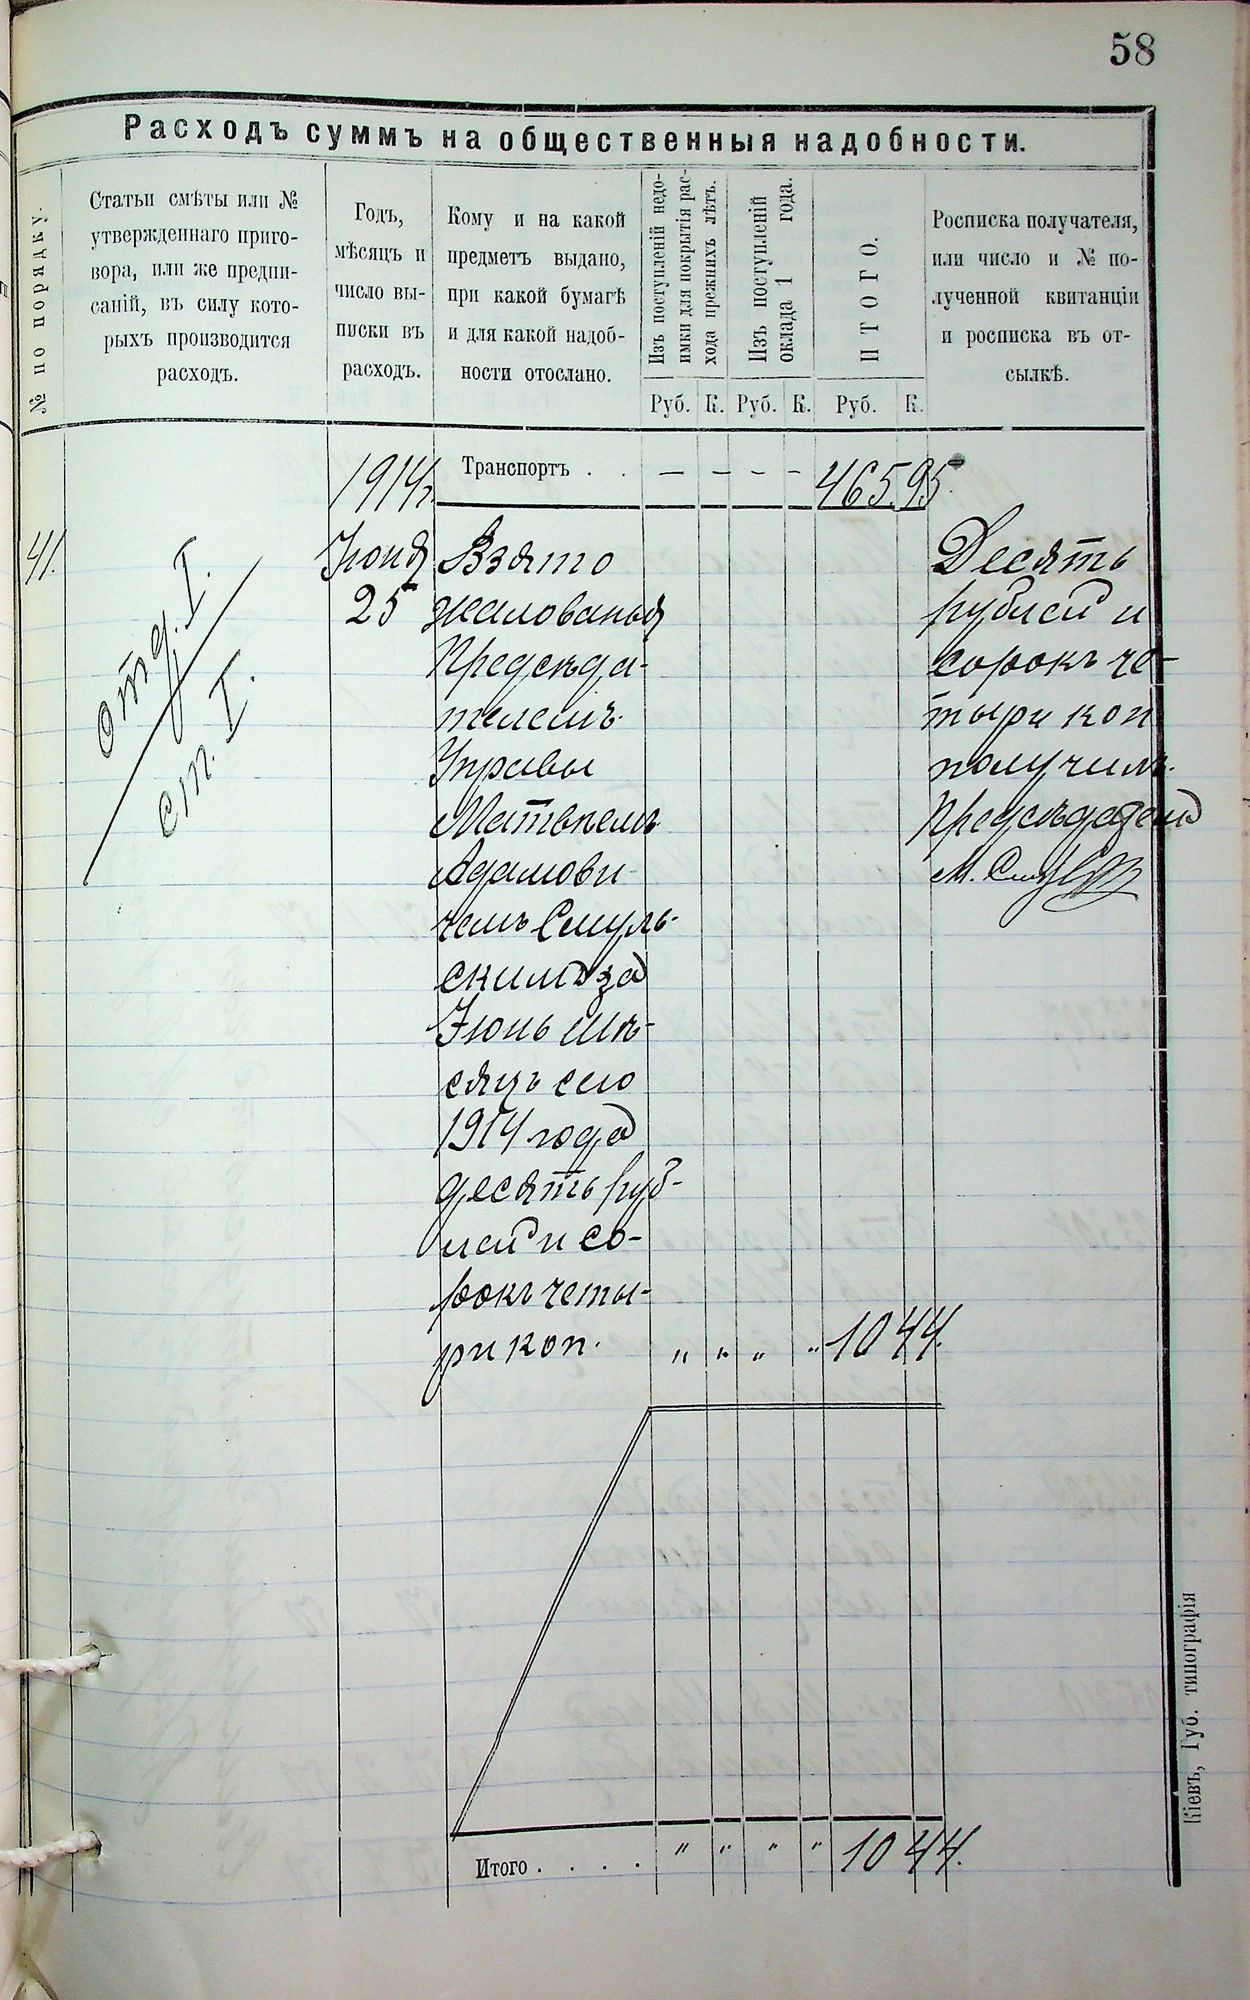 58
Расходъ суммъ на общественныя надобности.
№ по порядку.
Статьи смѣты или №
утвержденнаго приго-
вора, или же предпи-
саній, въ силу кото-
рыхъ производится
расходъ.
Годъ,
мѣсяцъ и
число вы-
писки въ
расходъ.
Кому и на какой
предметъ выдано,
при какой бумагѣ
и для какой надоб-
ности отослано.
Изъ поступленій недо-
имки для покрытія рас-
хода прежнихъ лѣтъ.
Изъ поступленій
оклада 1 года.
ИТОГО.
Росписка получателя,
или число и № по-
лученной квитанціи
и росписка въ от-
сылкѣ.
Руб. К. Руб. К. Руб. К.
1914 г. Транспортъ . . — — - - 465.95.
41.
отд. I.
ст. I.
Іюня
25
Взято
жалованья
Предсѣда-
телемъ
Управы
Матвѣемъ
Адамови-
чемъ Смуль-
скимъ за
Іюнь мѣ-
сяцъ сего
1914 года
десять руб-
лей и со-
рокъ четы-
ри коп. " " " " 10 44.
Десять
рублей и
сорокъ че-
тыри коп
получилъ.
Предсѣдатель
М.
Итого . . . . " " " " 10 44.
Кіевъ, Губ. типографія